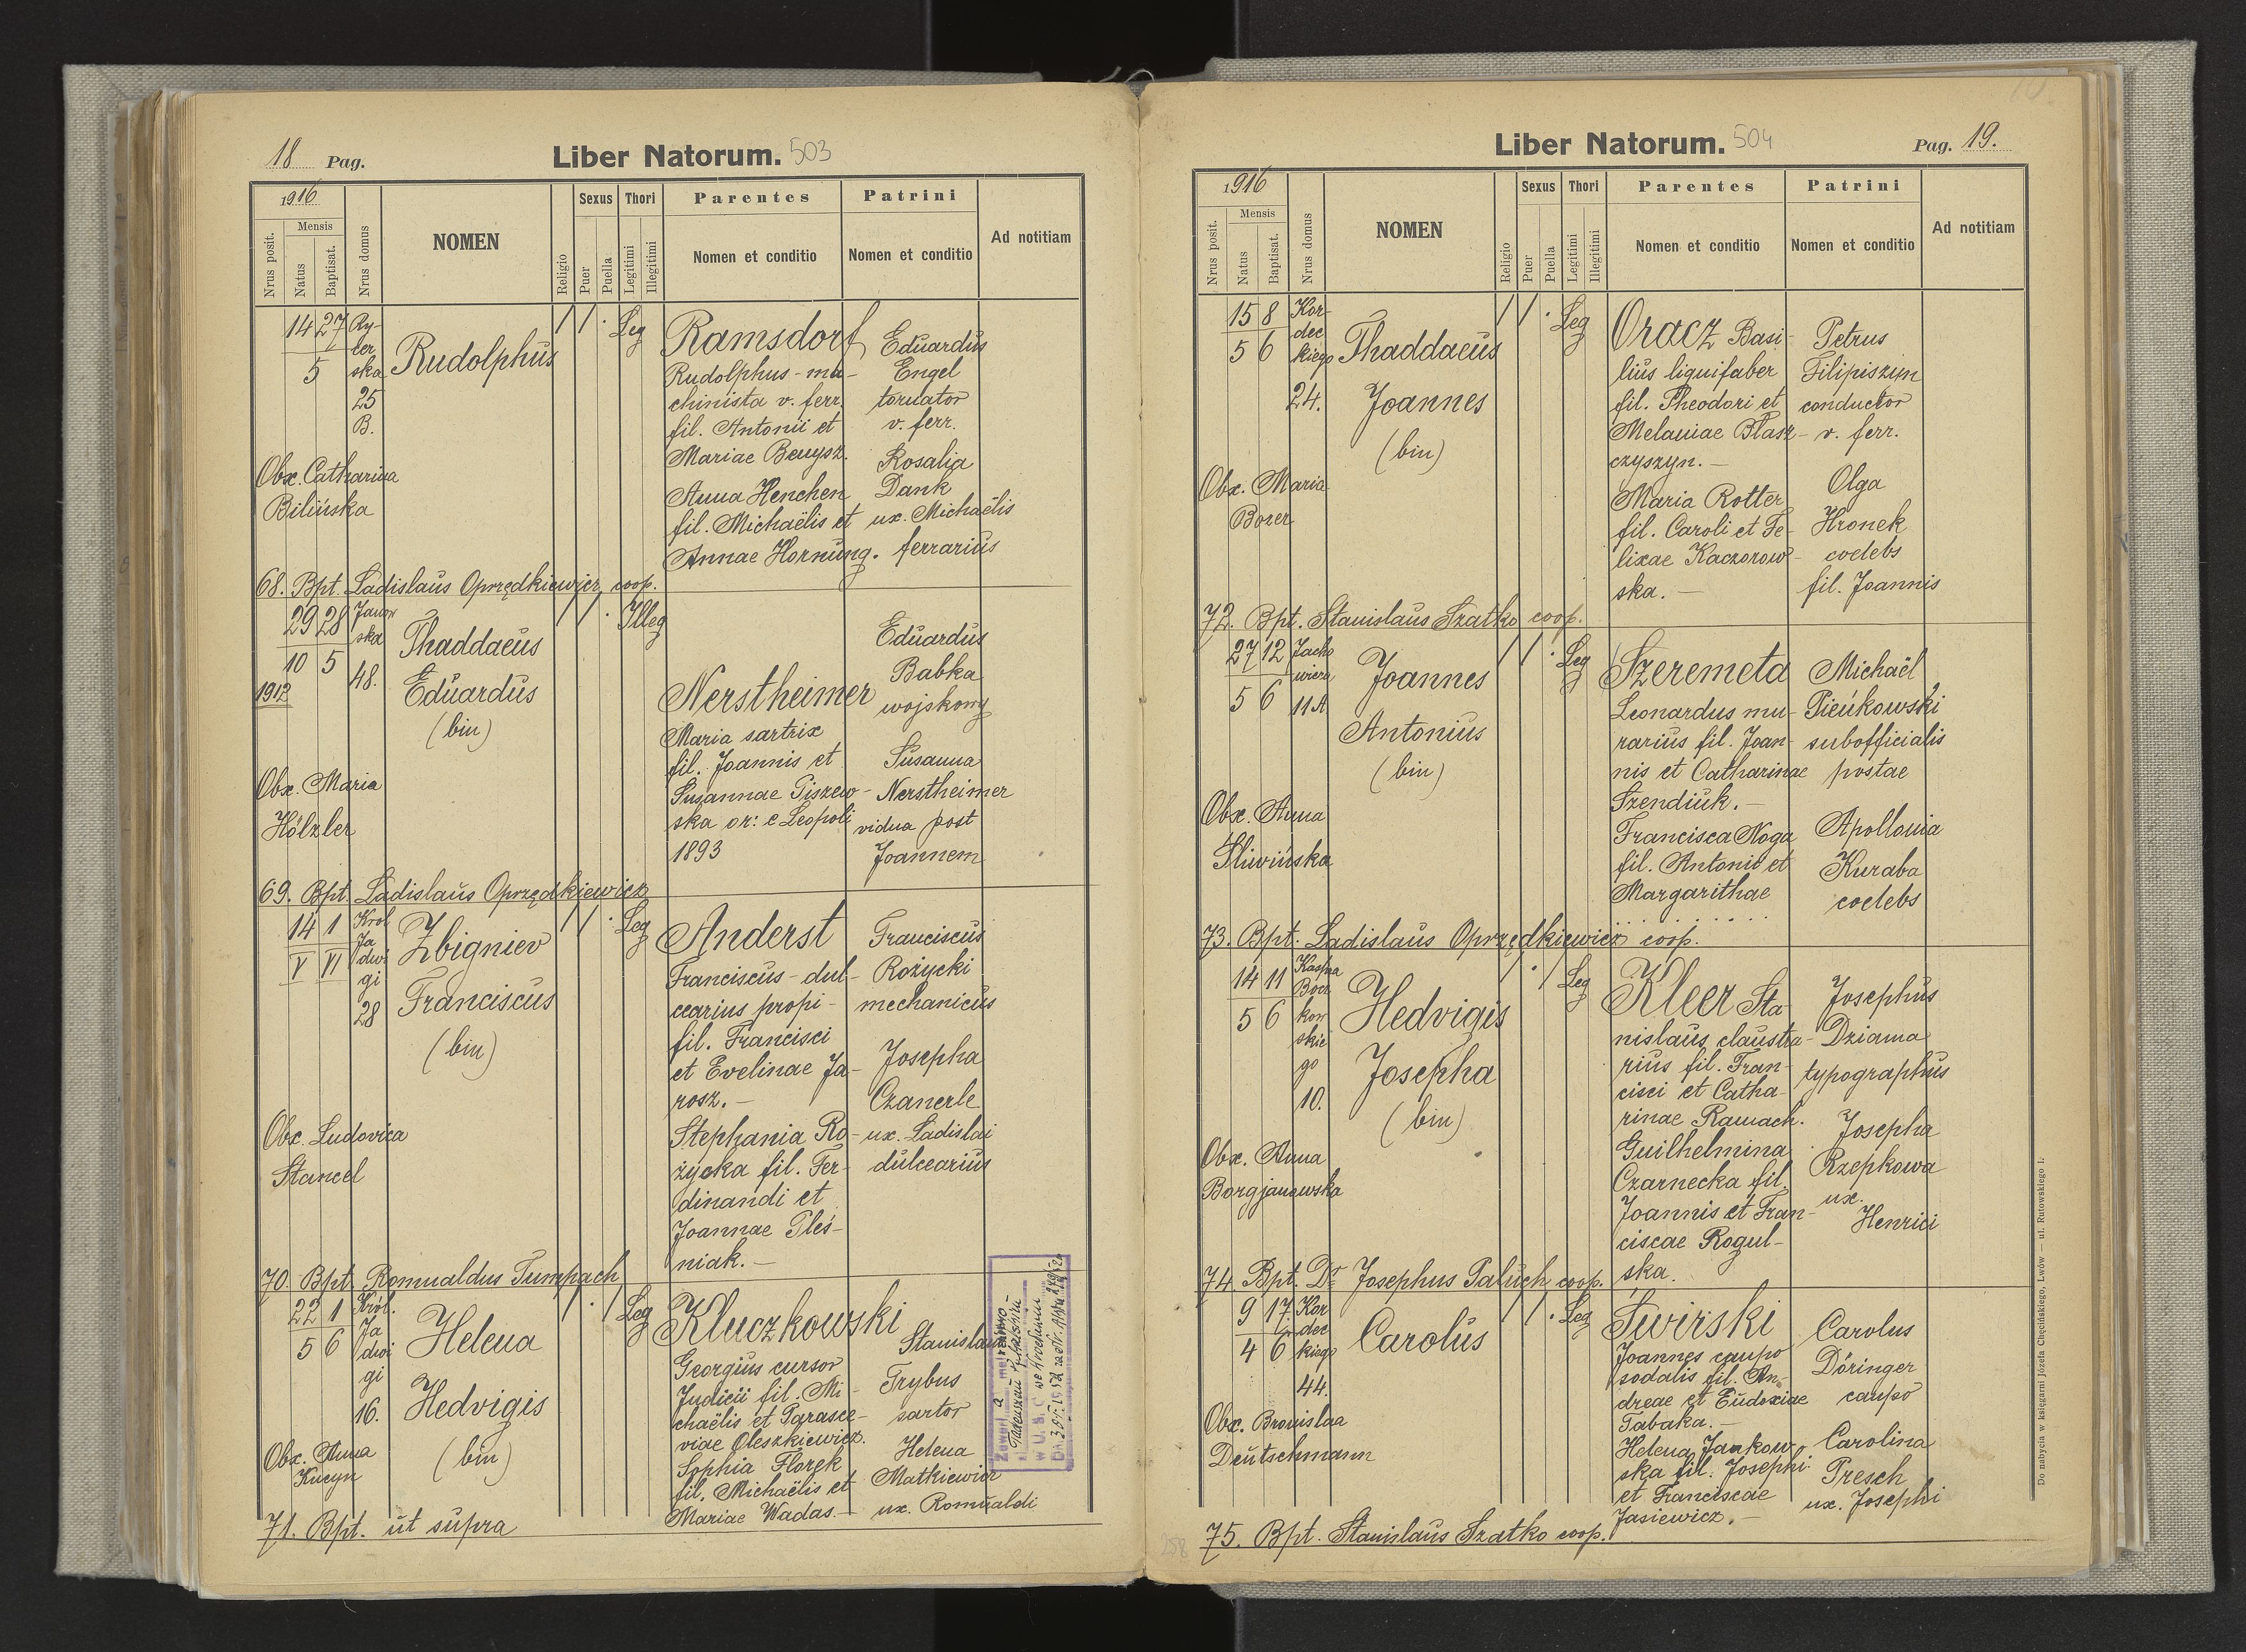 18 Pag.
Liber Natorum. 503
1916
Nrus posit.
Mensis
Natus
Baptisat.
Nrus domus
NOMEN
Religio
Sexus
Puer
Puella
Thori
Legitimi
Illegitimi
Parentes
Nomen et conditio
Patrini
Nomen et conditio
Ad notitiam
14 27
5
Ry-
cer
ska
25
B.
Rudolphus
Leg
Ramsdorf
Rudolphus - ma-
chinista v. ferr.
fil. Antonii et
Mariae Benysz.
Anna Henchen
fil. Michaëlis et
Annae Hornung.
Eduardus
Engel
tornator
v. ferr.
Rosalia
Dank
ux. Michaëlis
ferrarius
Obx. Catharina
Bilińska
68. Bpt. Ladislaus Oprzędkiewicz coop.
29 28
10 5
1912
Janow
ska
48.
Thaddaeus
Eduardus
(bin)
Illeg
Nerstheimer
Maria sartrix
fil. Joannis et
Susannae Piszew-
ska or: e Leopoli
1893
Eduardus
Babka
wojskowy
Susanna
Nerstheimer
vidua post
Joannem
Obx. Maria
Hölzler
69. Bpt. Ladislaus Oprzędkiewicz
14 1
V VI
Król
Ja
dwi
gi
28
Zbigniev
Franciscus
(bin)
Leg
Anderst
Franciscus - dul-
cearius propi-
fil. Francisci
et Evelinae Ja-
rosz. -
Stephania Ro-
życka fil. Fer-
dinandi et
Joannae Pleś-
niak. -
Franciscus
Rożycki
mechanicus
Josepha
Czanerle
ux. Ladislai
dulcearius
Obx. Ludovica
Stancel
70. Bpt. Romualdus Tumpach
22 1
5 6
Król.
Ja
dwi
gi
16.
Helena
Hedvigis
(bin)
Leg
Kluczkowski
Georgius cursor
Judicii fil. Mi-
chaëlis et Parasce-
viae Oleszkiewicz.
Sophia Florek
fil. Michaëlis et
Mariae Wadas. -
Stanislaus
Trybus
sartor
Helena
Matkiewicz
ux. Romualdi
Obx. Anna
Kucyn
71. Bpt. ut supra
Liber Natorum. 504
Pag. 19.
1916
Nrus posit.
Mensis
Natus
Baptisat.
Nrus domus
NOMEN
Religio
Sexus
Puer
Puella
Thori
Legitimi
Illegitimi
Parentes
Nomen et conditio
Patrini
Nomen et conditio
Ad notitiam
15 8
5 6
Kor-
dec
kiego
24.
Thaddaeus
Joannes
(bin)
Leg
Oracz Basi-
lius liguifaber
fil. Theodori et
Melaniae Blasz-
czyszyn. -
Maria Rotter
fil. Caroli et Fe-
lixae Kaczorow-
ska. -
Petrus
Filipiszim
conductor
v. ferr.
Olga
Hronek
coelebs
fil. Joannis
Obx. Maria
Borer
72. Bpt. Stanislaus Szatko coop.
27 12
5 6
Jacho
wicza
11A
Joannes
Antonius
(bin)
Leg
Szeremeta
Leonardus mu-
rarius fil. Joan-
nis et Catharinae
Szendiuk. -
Francisca Noga
fil. Antonii et
Margarithae
. . . . . . . .
Michaël
Pieńkowski
subofficialis
postae
Apollonia
Kuraba
coelebs
Obx. Anna
Śliwińska
73. Bpt. Ladislaus Oprzędkiewicz coop.
14 11
5 6
Kaspra
Bocz
kow
skie
go
10.
Hedvigis
Josepha
(bin)
Leg
Kleer Sta-
nislaus claustra-
rius fil. Fran-
cisci et Catha-
rinae Ramach.
Guilhelmina
Czarnecka fil.
Joannis et Fran-
ciscae Rogul-
ska.
Josephus
Dziama
typographus
Josepha
Rzepkowa
ux.
Henrici
Obx. Anna
Borgjanowska
74. Bpt. Dr Josephus Paluch coop.
9 17.
4 6
Kor
dec
kiego
44.
Carolus
Leg
Świrski
Joannes caupo
sodalis fil. An-
dreae et Eudoxiae
Tabaka. -
Helena Jankow-
ska fil. Josephi
et Franciscae
Jasiewicz. -
Carolus
Döringer
caupo
Carolina
Presch
ux. Josephi
Obx. Bronislaa
Deutschmann
75. Bpt. Stanislaus Szatko coop.
258
Do nabycia w księgarni Józefa Chęcińskiego, Lwów — ul. Rutowskiego 1.